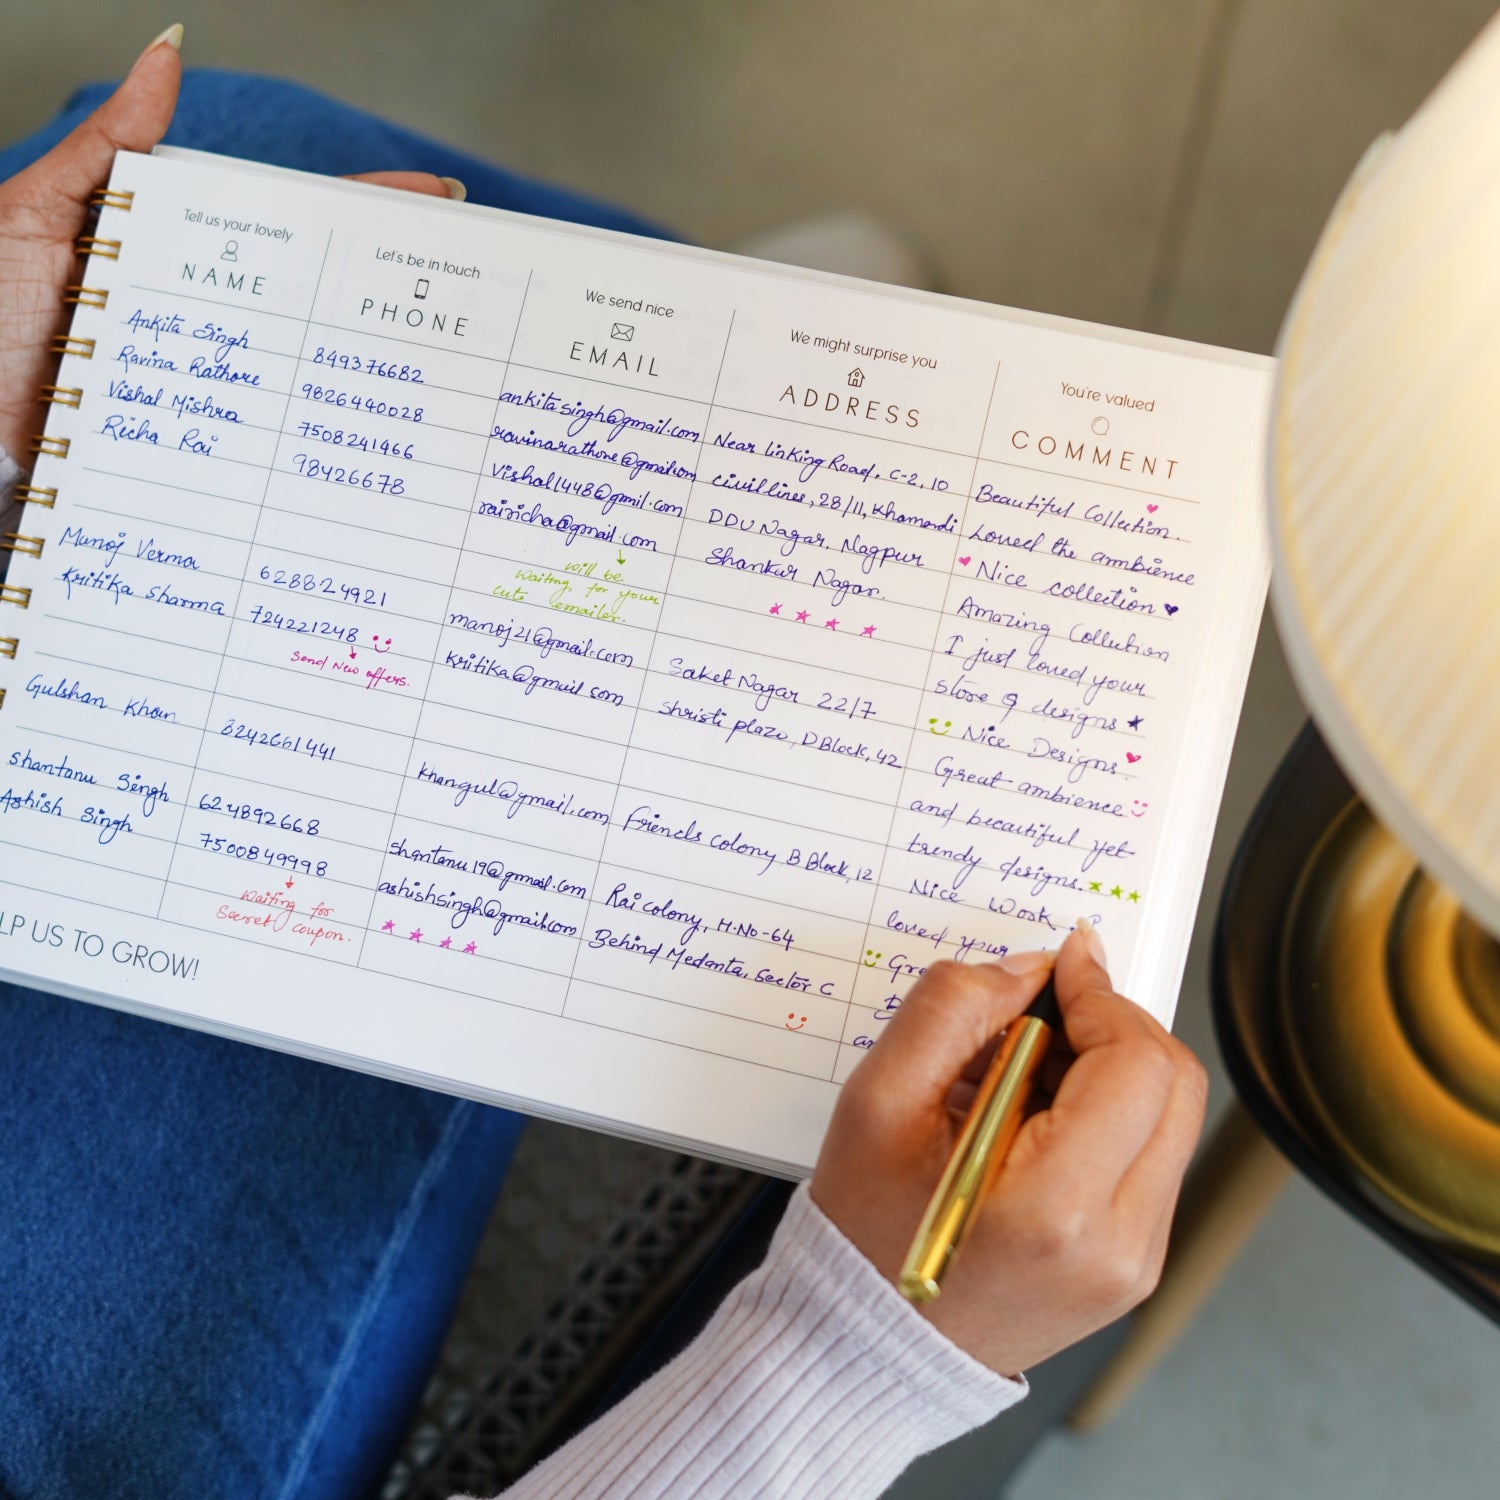 Tell us your lovely
NAME
Let's be in touch
PHONE
We send nice
EMAIL
We might surprise you
ADDRESS
You're valued
COMMENT
Ankita Singh
849376682
ankitasingh@gmail.com
Near linKing Road, C-2, 10
Beautiful Collection.
Ravina Rathore
9826440028
ravinarathore@gmail.com
civil lines, 28/11, Khamardi
Loved the ambience
Vishal Mishra
7508241466
Vishal1448@gmil.com
DDU Nagar, Nagpur
Nice collection
Richa Rai
98426678
rairicha@gmail.com
Shankar Nagar.
Amazing Collection
will be
waiting for your
cute emailer.
I just loved your
store & designs
Manoj Verma
628824921
manoj21@gmail.com
Saket Nagar 22/7
Nice Designs.
Kritika Sharma
724221248
kritika@gmail com
Shristi plaza, D Block, 42
Great ambience
Send New offers.
and beautiful yet
trendy designs.
Gulshan Khan
8242661441
khangul@gmail.com
Friends colony B Block, 12
Nice Work
loved your
Shantanu Singh
624892668
shantanu19@gmail.com
Rai colony, H.No-64
Ashish Singh
7500849998
ashishsingh@gmail.com
Behind Medanta, Sector C
Waiting for
Secret coupon.
LP US TO GROW!